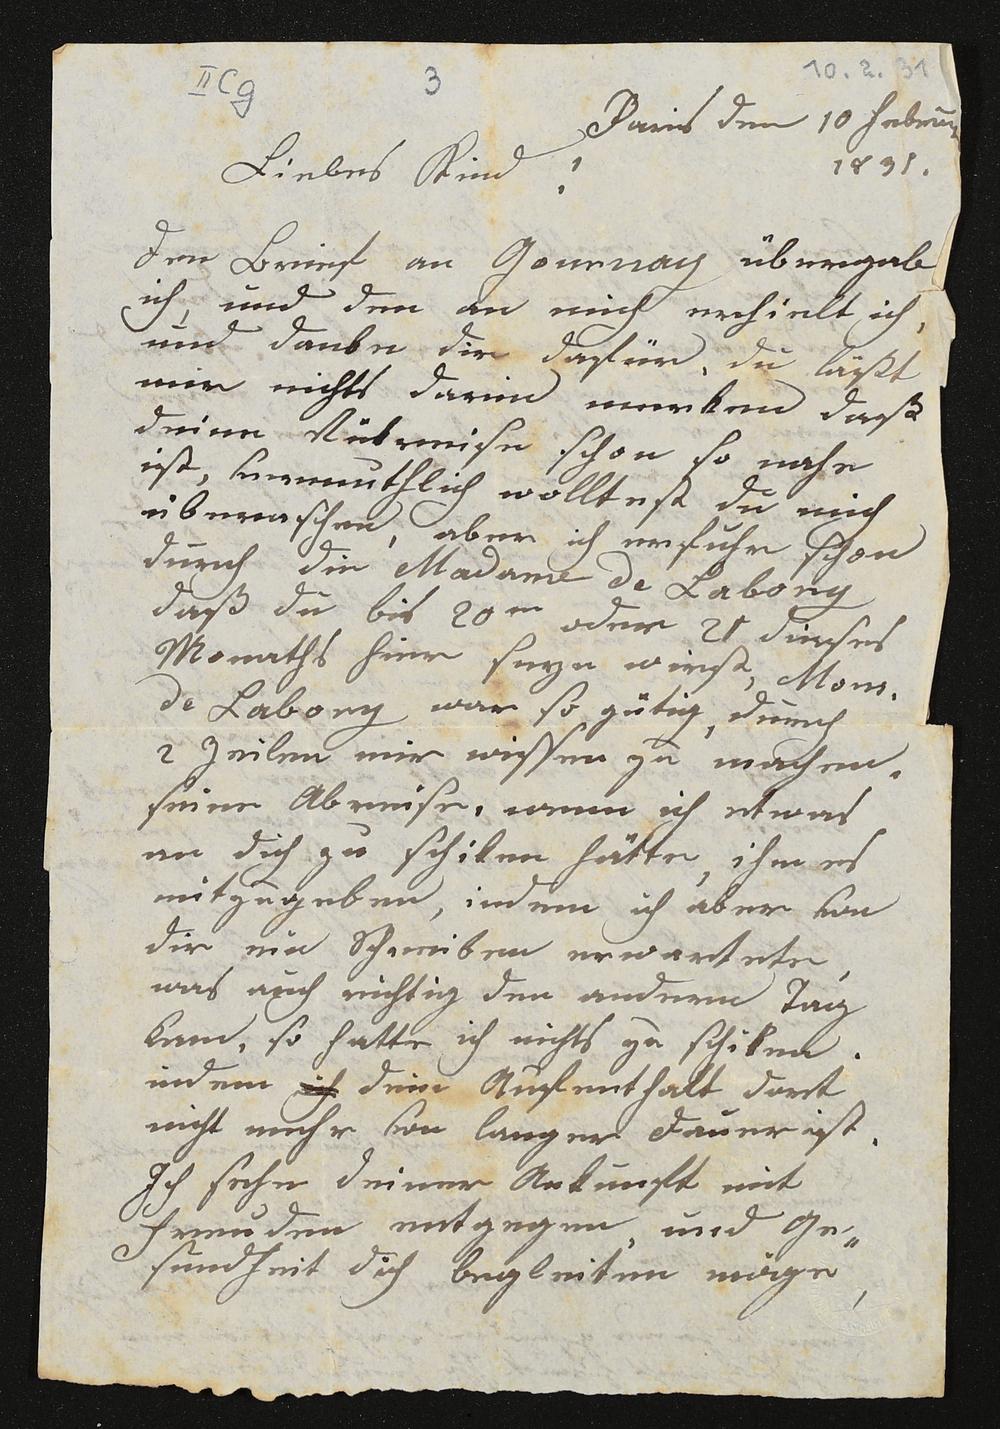 II Cg 3 10. 2. 31
Paris den 10 Februar
1831.
Liebes Kind !
den Brief an Gournay übergab
ich, und den an mich erhielt ich,
und danke dir dafür. du läßt
mir nichts darin merken daß
deine Rükreise schon so nahe
ist, vermuthlich wolltest du mich
überraschen, aber ich erfuhr schon
durch die Madame de Labory
daß du bis 20ten oder 21 dieses
Monaths hier seyn wirst, Mons.
de Labory war so gütig, durch
2 Zeilen mir wissen zu machen.
seine Abreise. wenn ich etwas
an dich zu schiken hätte, ihm es
mitzugeben, indem ich aber von
dir ein Schreiben erwartete,
was auch richtig den andern Tag
kam, so hatte ich nichts zu schiken.
indem ich dein Aufenthalt dort
nicht mehr von langer Dauer ist.
Ich sehe deiner Ankunft mit
Freuden entgegen, und Ge„
sundheit dich begleiten möge,